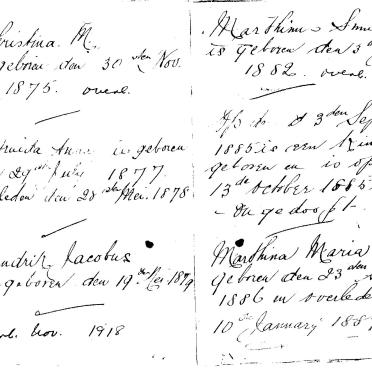 ristina M.
geboren den 30 sten Nov.
1875. overl.
Anna is geboren
29 st July 1877.
leden den 28 ste Mei. 1878
ndrik Jacobus
geboren den 19 de Mei 1879
Nov. 1918
Marthinus
is geboren den 3 d
1882. overl.
den 3 den Sep
1885 is een kin
geboren en is op
13 de October 1885
Marthina Maria
geboren den 23 sten
1886 en overlede
10 de January 188